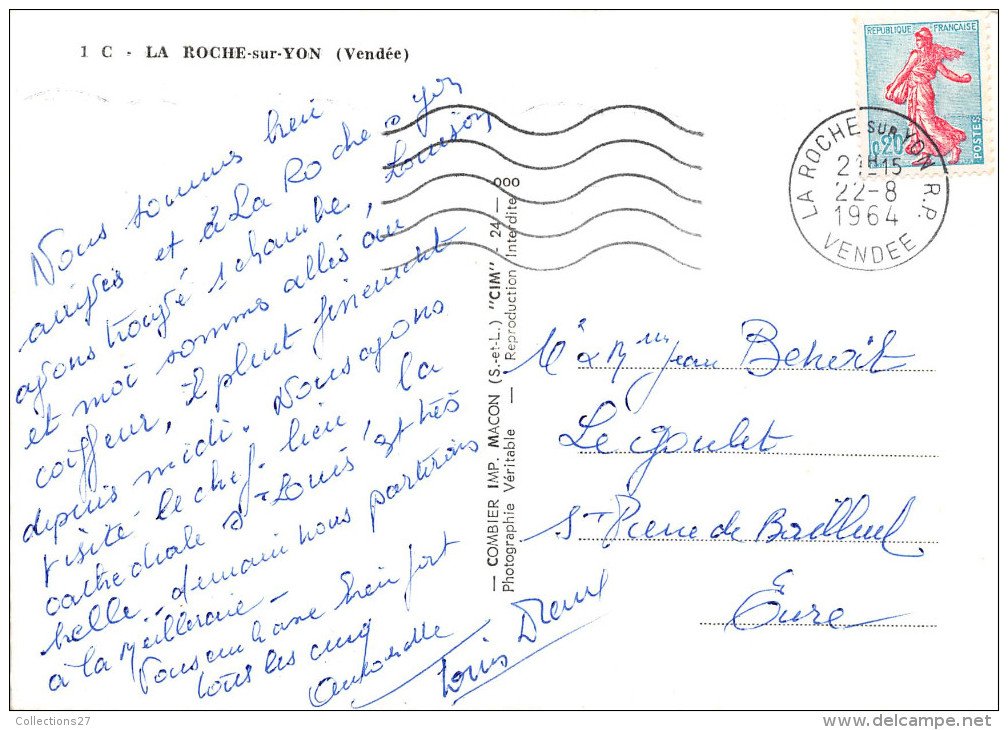 1 C - LA ROCHE-sur-YON (Vendée)
Nous sommes bien
arrivés et à La Roche s Yon
avons trouvé 1 chambre, Louison
et moi sommes allés au
coiffeur, il pleut finement
depuis midi. Nous avons
visité le chef-lieu, la
cathédrale St Louis est très
belle, demain nous partirons
à la Meilleraie -
Vous embrasse bien fort
tous les cinq
Louis
— COMBIER IMP. MACON (S.-et-L.) "CIM" - 24 — ooo
Photographie Véritable — Reproduction Interdite
REPUBLIQUE FRANÇAISE
0,20
POSTES
LA ROCHE SUR YON R.P.
21H15
22-8
1964
VENDEE
Mr & Mme Jean Benoit
Le Goulet
St Pierre de Bailleul
Eure
Collections27
www.delcampe.net